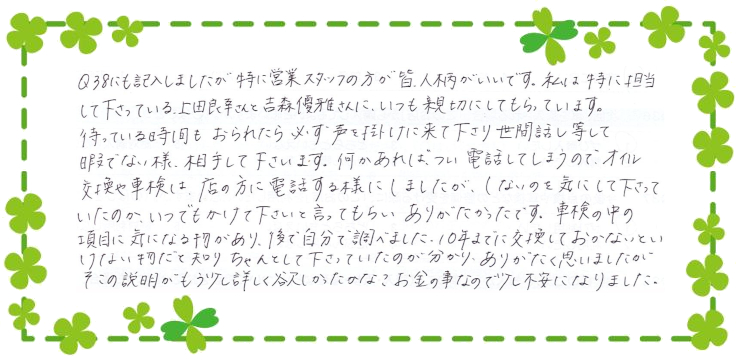 Q38にも記入しましたが特に営業スタッフの方が皆、人柄がいいです。私は特に担当
して下さっている上田良幸さんと吉森優雅さんに、いつも親切にしてもらっています。
待っている時間もおられたら必ず声を掛けに来て下さり世間話し等して
暇でない様、相手して下さいます。何かあればつい電話してしまうので、オイル
交換や車検は、店の方に電話する様にしましたが、しないのを気にして下さって
いたのか、いつでもかけて下さいと言ってもらいありがたかったです。車検の中の
項目に気になる物があり、後で自分で調べました。10年までに交換しておかないとい
けない物だと知りちゃんとして下さっていたのが分かり、ありがたく思いましたが
そこの説明がもう少し詳しく欲しかったかな?お金の事なので少し不安になりました。